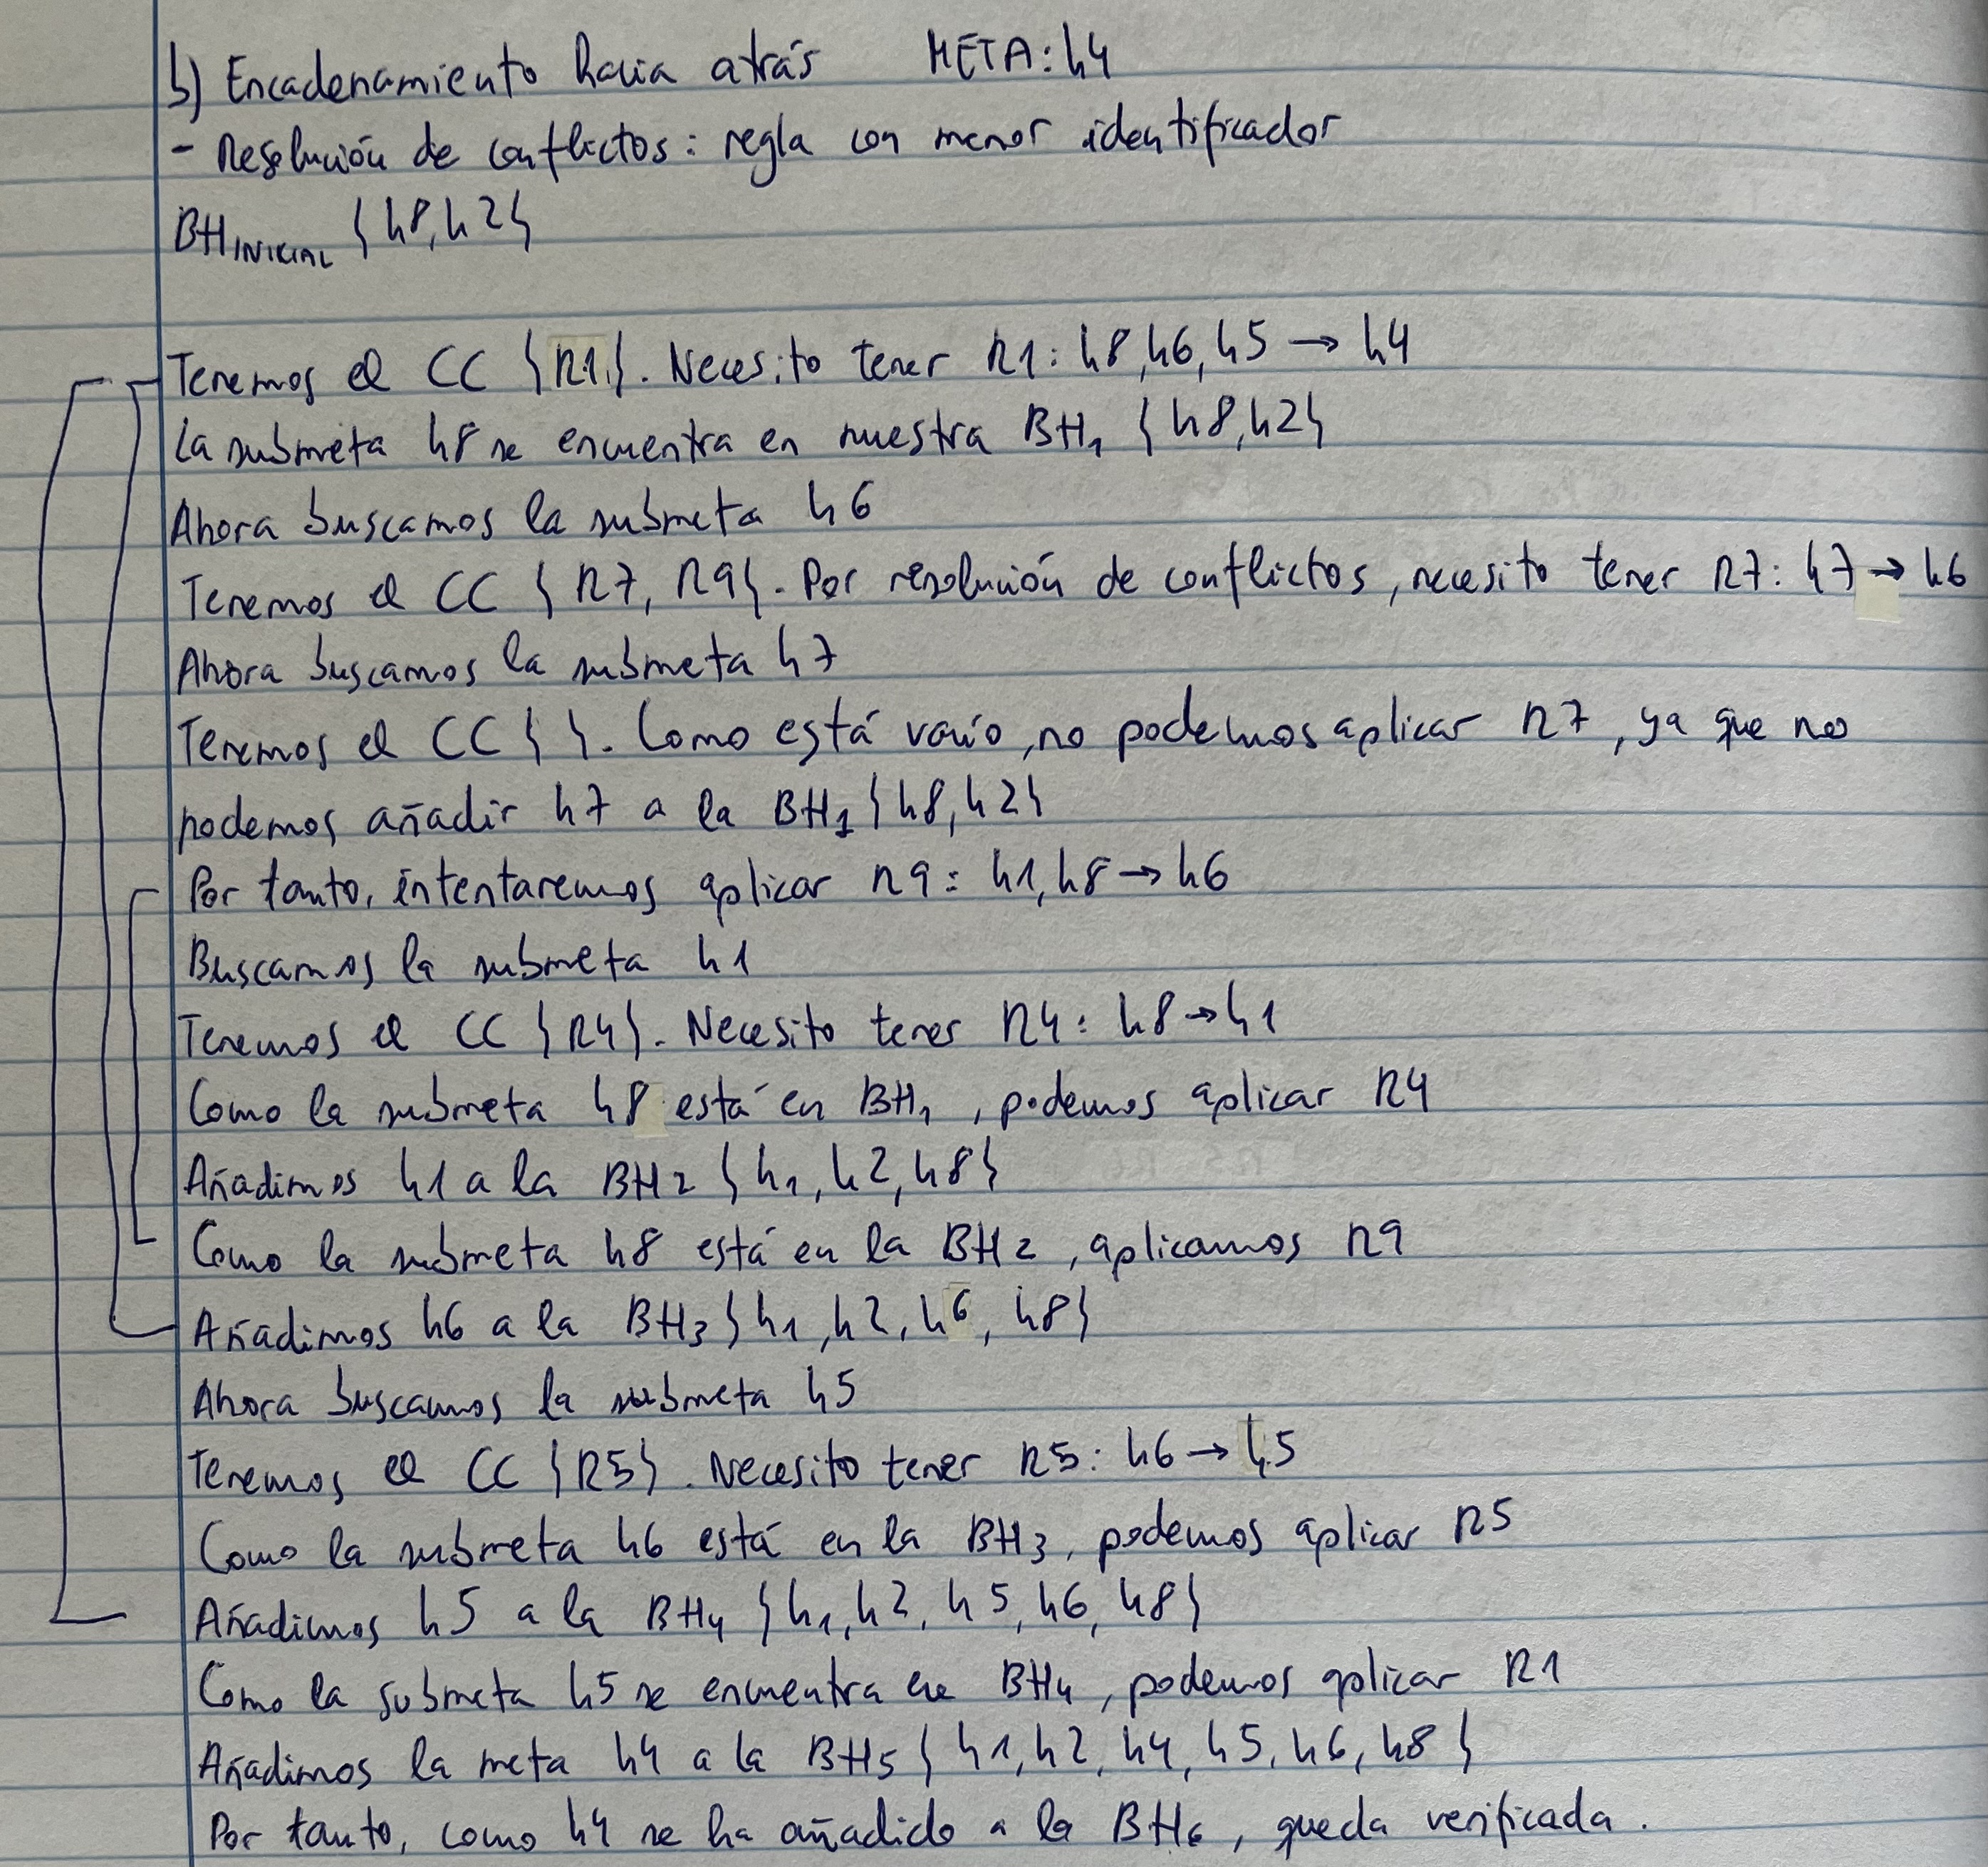 b) Encadenamiento hacia atrás META: h4
- Resolución de conflictos: regla con menor identificador
BH INICIAL {h8, h2}
Tenemos el CC {R1}. Necesito tener R1: h8, h6, h5 → h4
La submeta h8 se encuentra en nuestra BH1 {h8, h2}
Ahora buscamos la submeta h6
Tenemos el CC {R7, R9}. Por resolución de conflictos, necesito tener R7: h7 → h6
Ahora buscamos la submeta h7
Tenemos el CC { }. Como está vacío, no podemos aplicar R7, ya que no
podemos añadir h7 a la BH1 {h8, h2}
Por tanto, intentaremos aplicar R9: h1, h8 → h6
Buscamos la submeta h1
Tenemos el CC {R4}. Necesito tener R4: h8 → h1
Como la submeta h8 está en BH1, podemos aplicar R4
Añadimos h1 a la BH2 {h1, h2, h8}
Como la submeta h8 está en la BH2, aplicamos R9
Añadimos h6 a la BH3 {h1, h2, h6, h8}
Ahora buscamos la submeta h5
Tenemos el CC {R5}. Necesito tener R5: h6 → h5
Como la submeta h6 está en la BH3, podemos aplicar R5
Añadimos h5 a la BH4 {h1, h2, h5, h6, h8}
Como la submeta h5 se encuentra en BH4, podemos aplicar R1
Añadimos la meta h4 a la BH5 {h1, h2, h4, h5, h6, h8}
Por tanto, como h4 se ha añadido a la BH6, queda verificada.